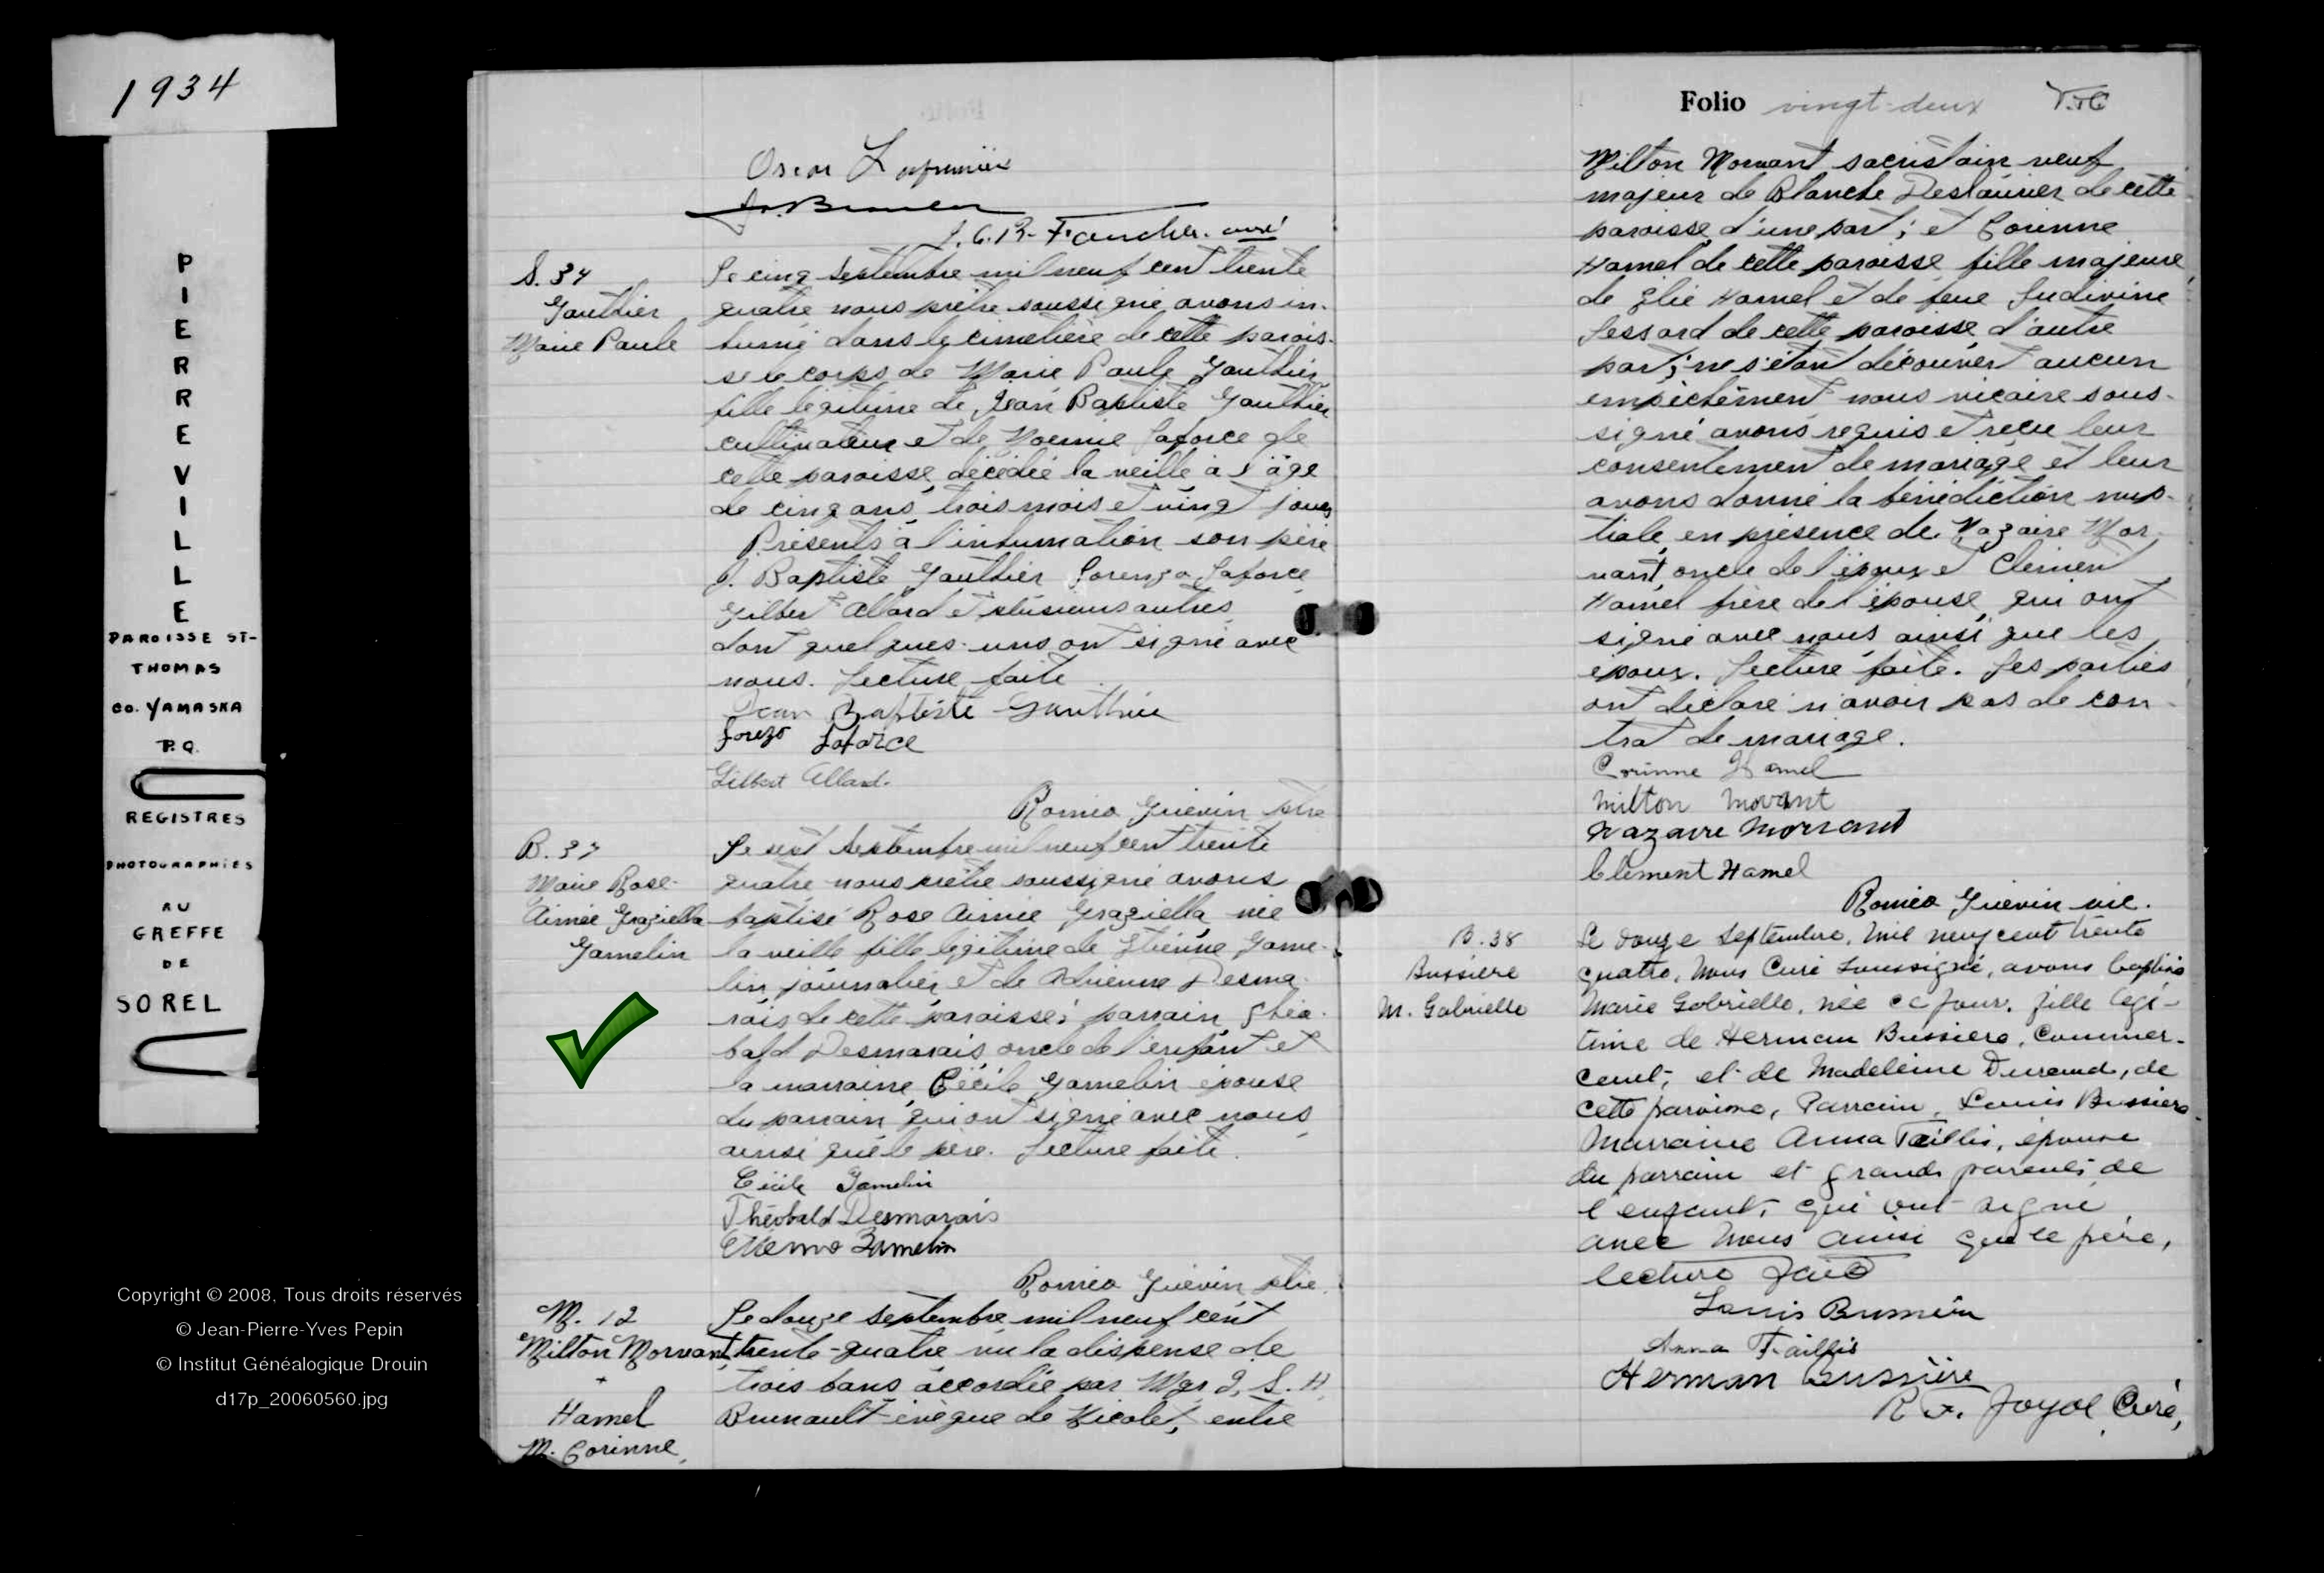 1934
PIERREVILLE
PAROISSE ST-
THOMAS
CO. YAMASKA
P.Q.
REGISTRES
PHOTOGRAPHIÉS
AU
GREFFE
DE
SOREL
Copyright © 2008, Tous droits réservés
© Jean-Pierre-Yves Pepin
© Institut Généalogique Drouin
d17p_20060560.jpg
Oscar
curé
S. 34
Gauthier
Marie Paule
Le cinq septembre mil neuf cent trente
quatre nous prêtre soussigné avons in-
humé dans le cimetière de cette parois-
se le corps de Marie Paule Gauthier
fille légitime de Jean Baptiste Gauthier
cultivateur et de Noémie Laforce de
cette paroisse, décédée la veille à l'âge
de cinq ans, trois mois et vingt jours
Présents à l'inhumation son père
J. Baptiste Gauthier Lorenzo Laforce
Gilbert Allard et plusieurs autres
dont quelques-uns ont signé avec
nous. Lecture faite
Jean Baptiste Gauthier
Lorezo Laforce
Gilbert Allard.
Roméo Guévin ptre
B. 37
Marie Rose-
Aimée Graziella
Gamelin
Le sept septembre mil neuf cent trente
quatre nous prêtre soussigné avons
baptisé Rose Aimée Graziella, née
la veille fille légitime de Etienne Game-
lin journalier et de Adrienne Desma-
rais de cette paroisse; parrain Théo-
bald Desmarais, oncle de l'enfant et
la marraine, Cécile Gamelin épouse
du parrain, qui ont signé avec nous
ainsi que le père. Lecture faite.
Cécile Gamelin
Théobald Desmarais
Etienne Gamelin
Roméo Guévin ptre.
M. 12
Milton Morvant
+
Hamel
M. Corinne,
Le douze septembre mil neuf cent
trente-quatre vu la dispense de
trois bans accordée par Mgr J. S. H.
Brunault évêque de Nicolet, entre
Folio vingt-deux
Milton Morvant sacristain veuf
majeur de Blanche Deslaurier de cette
paroisse, d'une part; et Corinne
Hamel de cette paroisse, fille majeure
de Elie Hamel et de feue Ludivine
Lessard de cette paroisse, d'autre
part; ne s'étant découvert aucun
empêchement nous vicaire sous-
signé avons requis et reçu leur
consentement de mariage et leur
avons donné la bénédiction nup-
tiale en présence de Nazaire Mor-
vant, oncle de l'époux et Clément
Hamel frère de l'épouse, qui ont
signé avec nous ainsi que les
époux. Lecture faite. Les parties
ont déclaré n'avoir pas de con-
trat de mariage.
Corinne Hamel
Milton Movant
Nazaire Morvant
Clément Hamel
Roméo Guévin vic.
B. 38
Bussière
M. Gabrielle
Le douze septembre, mil neuf cent trente
quatre, nous Curé soussigné, avons baptisé
Marie Gabrielle, née ce jour, fille légi-
time de Herman Bussière, commer-
cent, et de Madeleine Durand, de
cette paroisse, Parrain, Louis Bussière
Marraine Anna Taillis, épouse
du parrain et grands parents de
l'enfant, qui ont signé
avec nous ainsi que le père,
lecture faite
Louis Bussière
Anna Taillis
Herman Bussière
Joyal Curé,